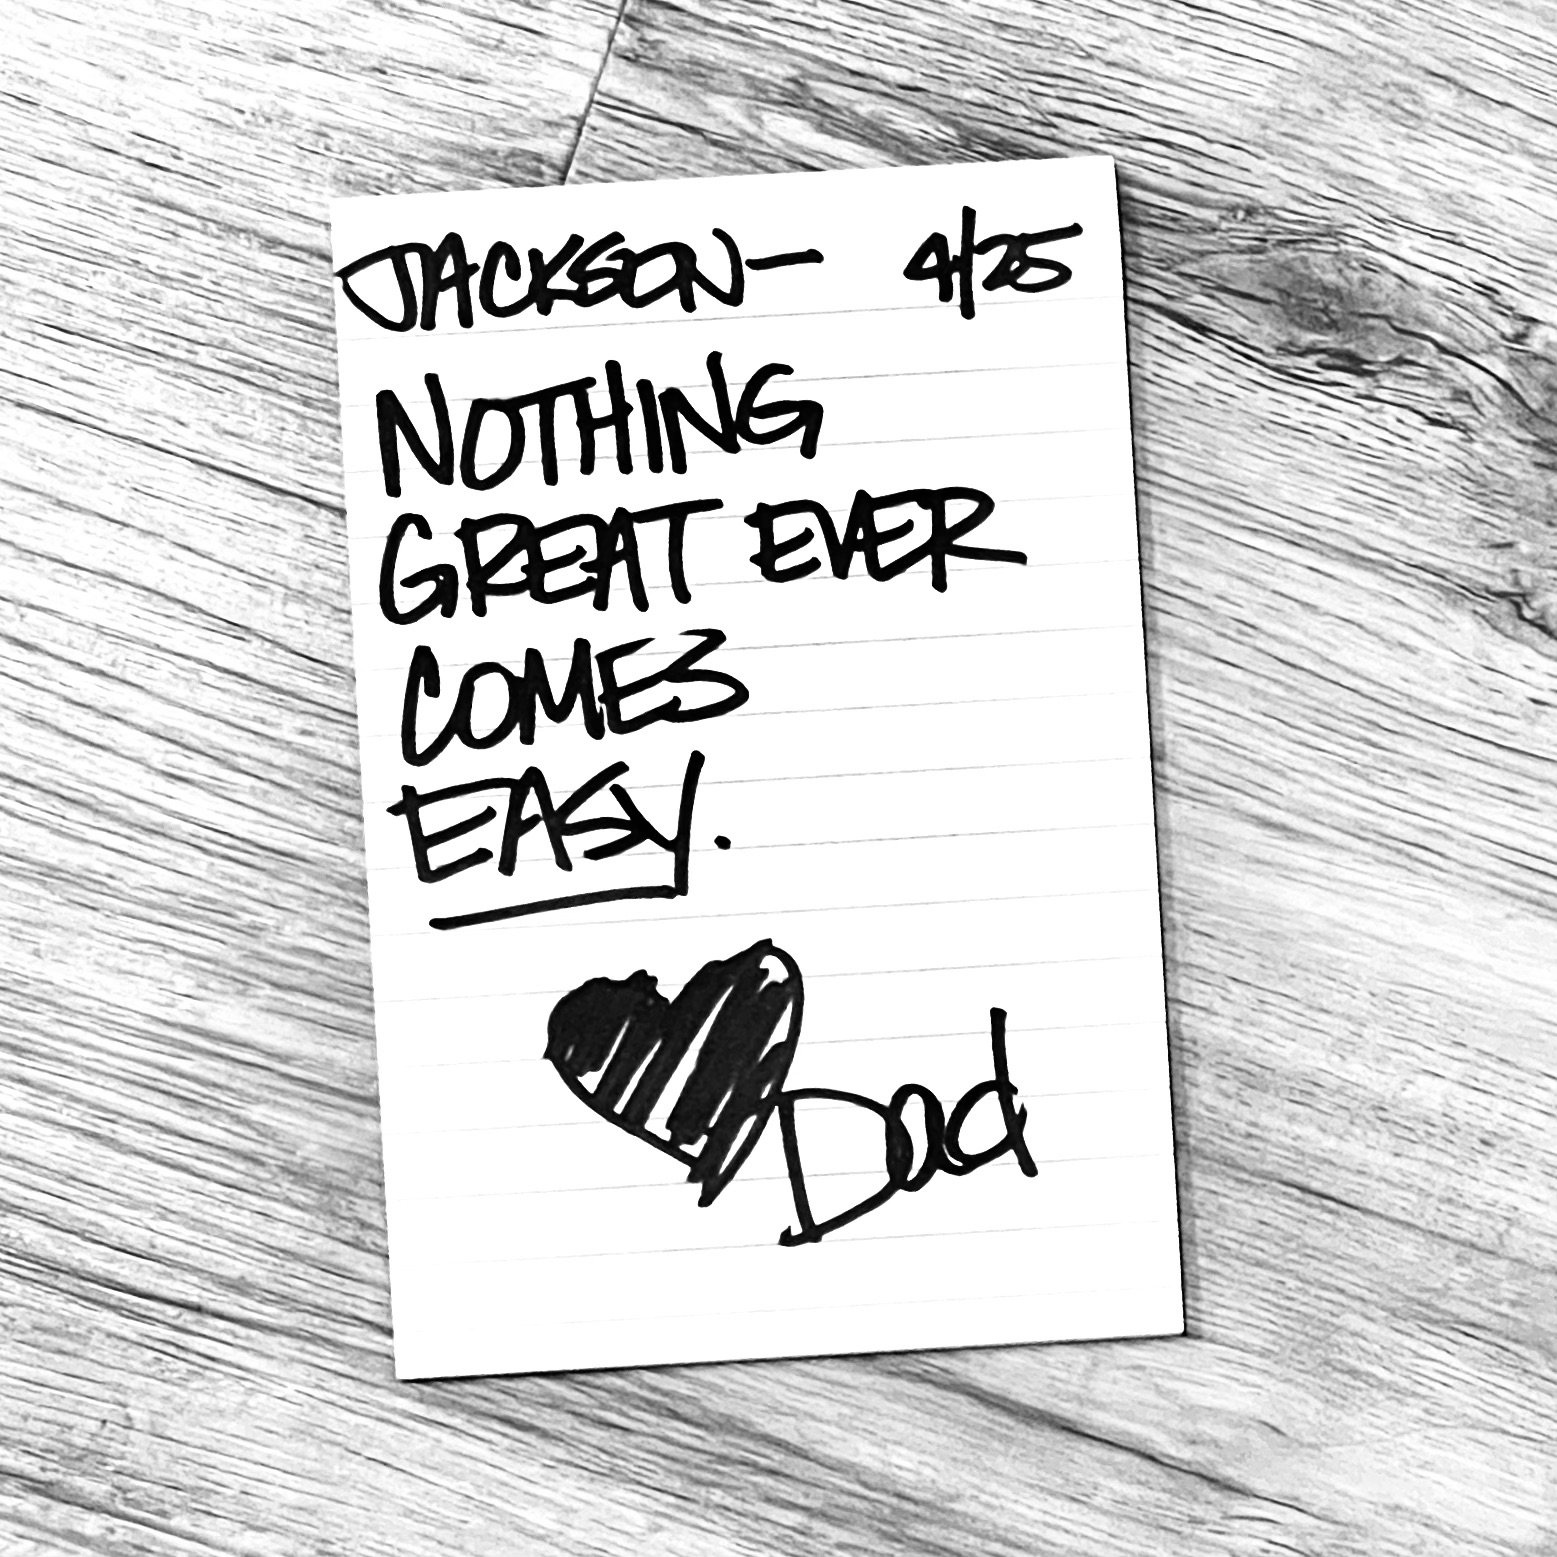 JACKSON— 4/25
NOTHING
GREAT EVER
COMES
EASY.
Dad